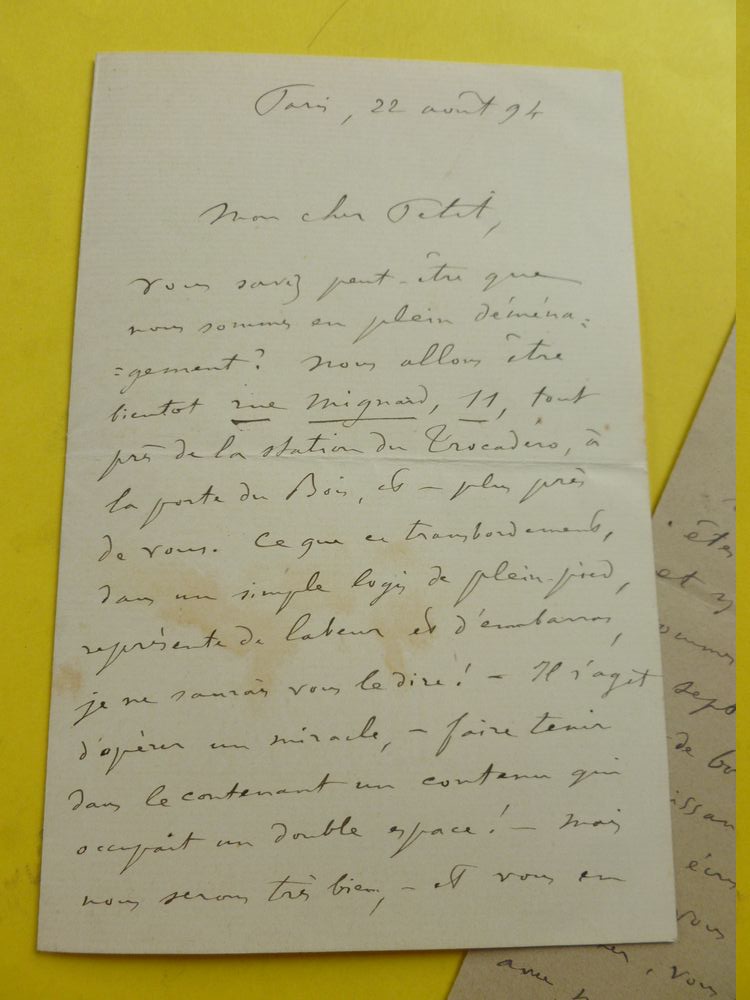 Paris, 22 août 94
Mon cher Petit,
Vous savez peut-être que
nous sommes en plein déména=
=gement? Nous allons être
bientôt rue Mignard, 11, tout
près de la station du Trocadéro, à
la porte du Bois, et – plus près
de vous. Ce que ce transbordement,
dans un simple logis de plein-pied,
représente de labeur et d'embarras,
je ne saurais vous le dire! – Il s'agit
d'opérer un miracle, – faire tenir
dans le contenant un contenu qui
occupait un double espace! – Mais
nous serons très bien, – et vous en
êtes
et
sommes
de
vous
, vous
avec